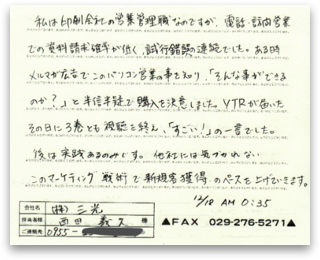 私は印刷会社の営業管理職なのですが、電話・訪問営業
での資料請求確率が低く、試行錯誤の連続でした。ある時
メルマガ広告でこのパソコン営業の事を知り、「そんな事ができる
のか?」と半信半疑で購入を決意しました。VTRが届いた
その日に3巻とも視聴を終え、「すごい!」の一言でした。
後は実践あるのみです。他社には気づかれない
このマーケティング戦術で新規客獲得のペースを上げていきます。
12/18 AM 0:35
会社名 (株)三光
担当者様 西田義久 様
ご連絡先 0955-
▲FAX 029-276-5271▲